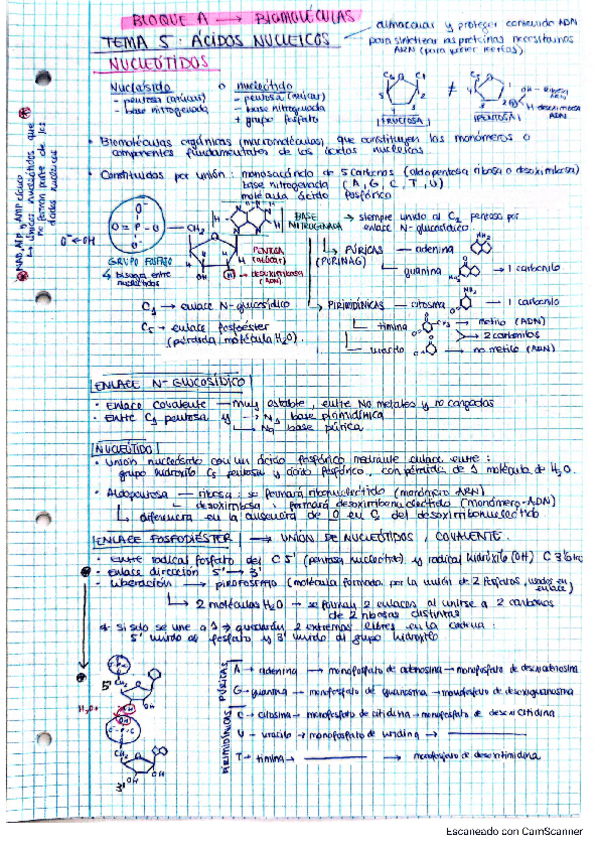 BLOQUE A → BIOMOLÉCULAS
TEMA 5: ÁCIDOS NUCLEICOS
almacenar y proteger contenido ADN
para sintetizar las proteínas necesitamos
ARN (para poder leerlas).
NUCLEÓTIDOS
Nucleósido o nucleótido
- pentosa (azúcar) - pentosa (azúcar)
- base nitrogenada - base nitrogenada
+ grupo fosfato
FRUCTOSA
≠
PENTOSA
• Biomoléculas orgánicas (macromoléculas) que constituyen los monómeros o
componentes fundamentales de los ácidos nucleicos.
• Constituidos por unión: monosacárido de 5 carbonos (aldopentosa ribosa o desoxirribosa)
base nitrogenada (A, G, C, T, U)
molécula ácido fosfórico
NAD, ATP y AMP cíclico
únicos nucleótidos que
no forman parte de los
ácidos nucleicos
GRUPO FOSFATO
CH2
PENTOSA
(AZÚCAR)
desoxirribosa
(ADN)
BASE
NITROGENADA
→ siempre unido al C1 pentosa por
enlace N-glucosídico
PÚRICAS — adenina
(PURINAS)
guanina → 1 carbonilo
PIRIMIDÍNICAS → citosina → 1 carbonilo
timina → metilo (ADN)
2 carbonilos
uracilo → no metilo
C1 → enlace N-glucosídico
C5 → enlace fosfoéster
(pérdida 1 molécula H2O).
ENLACE N-GLUCOSÍDICO
• Enlace covalente — muy estable, entre no metales y no cargados
• Entre C1 pentosa y → N1 base pirimidínica
→ N9 base púrica.
NUCLEÓTIDO
• Unión nucleósido con un ácido fosfórico mediante enlace entre:
grupo hidroxilo C5 pentosa y ácido fosfórico, con pérdida de 1 molécula de H2O.
• Aldopentosa — ribosa: se formará ribonucleótido (monómero ARN)
desoxirribosa: formará desoxirribonucleótido (monómero-ADN)
diferencia en la ausencia de O en C2 del desoxirribonucleótido
ENLACE FOSFODIÉSTER → UNIÓN DE NUCLEÓTIDOS, COVALENTE.
• Entre radical fosfato del C5' (pentosa nucleótido) y radical hidróxilo (OH) C3'
• Enlace dirección 5' → 3'
• Liberación → PIROFOSFATO (molécula formada por la unión de 2 fósforos, usados en
enlace)
2 moléculas H2O → se forman 2 enlaces al unirse a 2 carbonos
de 2 ribosas distintas
Si sólo se une a 1 → quedarán 2 extremos libres en la cadena:
5' unido al fosfato y 3' unido al grupo hidroxilo
CH2
5'
H2O
OH
CH2
OH OH
3'
PÚRICAS
A → adenina → monofosfato de adenosina → monofosfato de desoxiadenosina
G → guanina → monofosfato de guanosina → monofosfato de desoxiguanosina
PIRIMIDÍNICAS
C → citosina → monofosfato de citidina → monofosfato de desoxicitidina
U → uracilo → monofosfato de uridina →
T → timina → → monofosfato de desoxitimidina
Escaneado con CamScanner